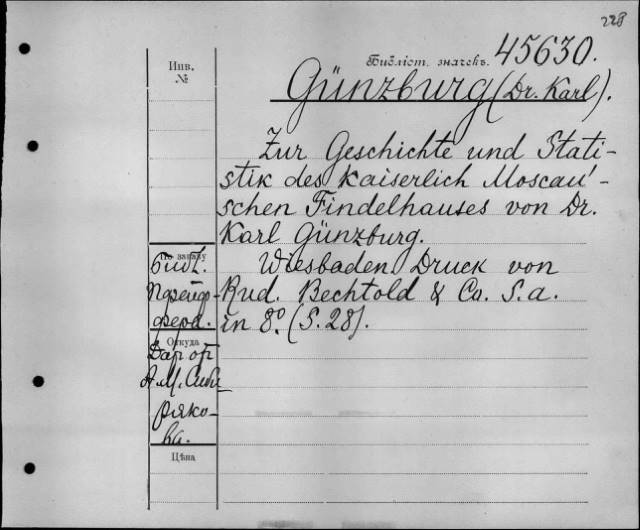 228
Библіот. значекъ. 45630.
Инв.
№
Günzburg (Dr. Karl).
Zur Geschichte und Stati-
stik des Kaiserlich Moscau'-
schen Findelhauses von Dr.
Karl Günzburg.
Wiesbaden Druck von
Rud. Bechtold & Co. S. a.
in 8º. (S. 28).
По заказу
Библ.
Пфейф-
фера.
Откуда
Дар от
А. М. Сиби
ряко-
ва.
Цѣна